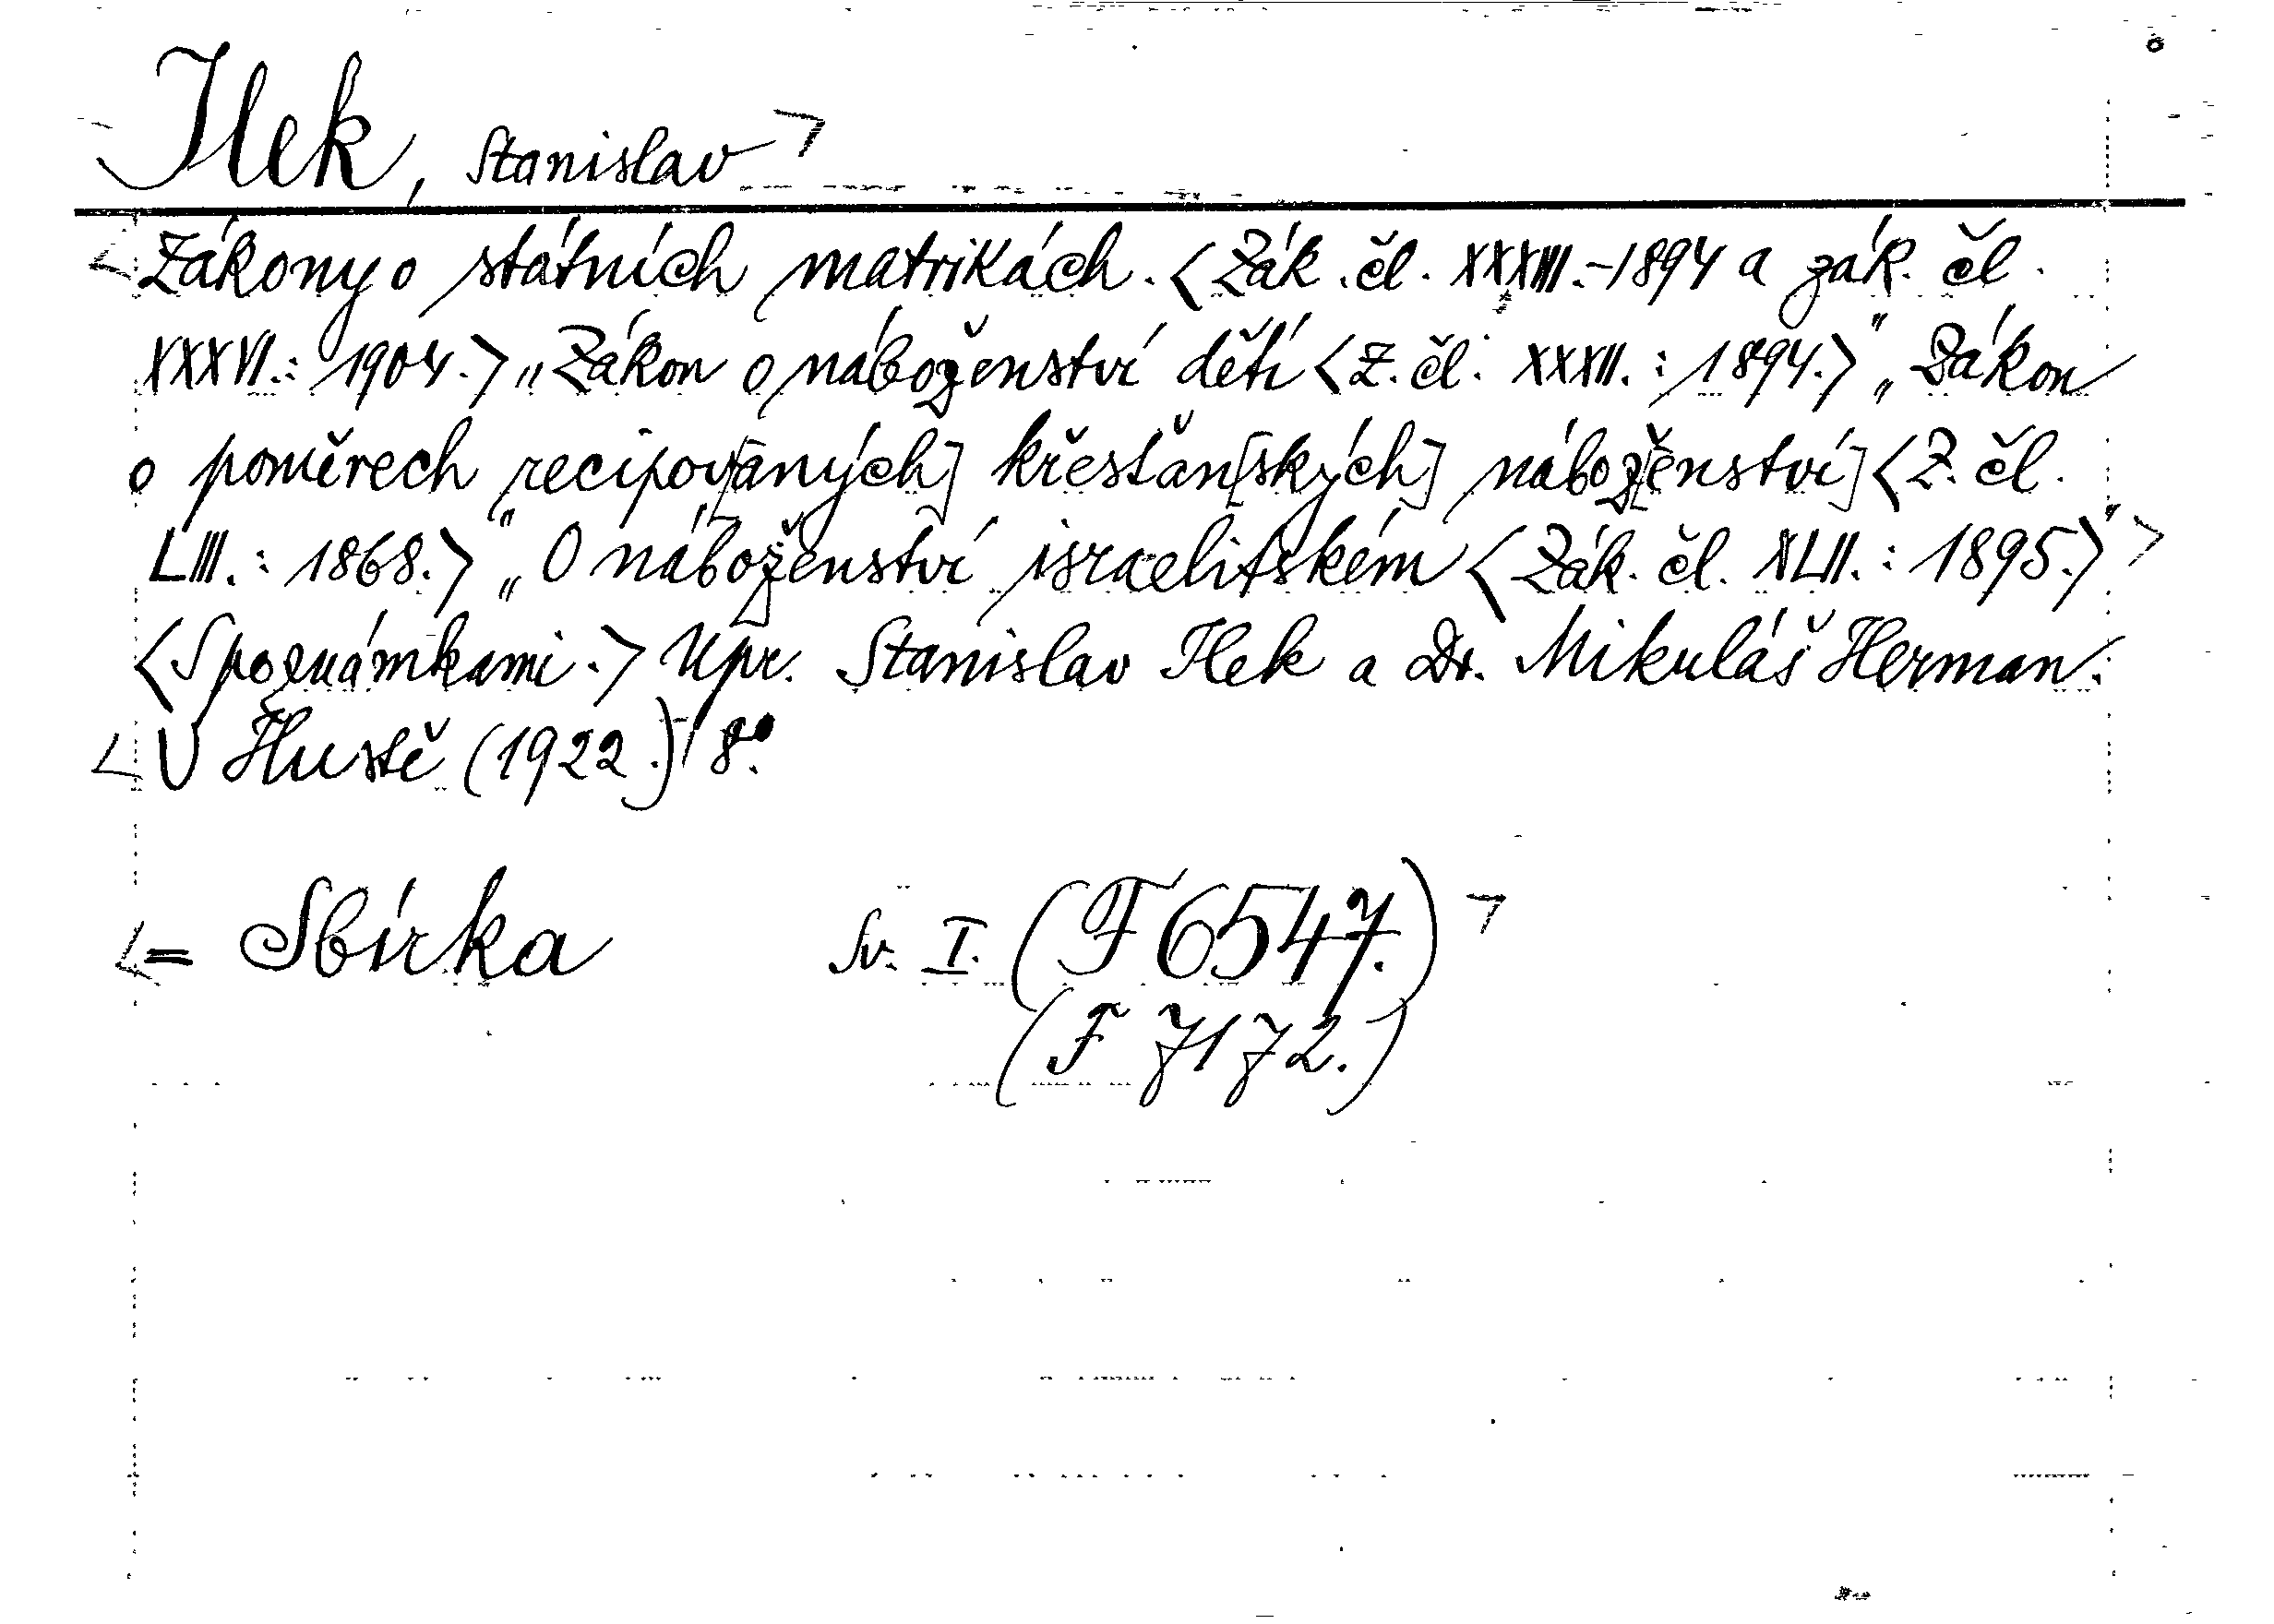 Ilek, Stanislav
Zákony o státních matrikách. <Zák. čl. XXXIII.-1894 a zák. čl.
XXXVI.: 1904.> „Zákon o náboženství dětí <Z. čl. XXXII.: 1894.>" „Zákon
o poměrech recipov[aných] křesťan[ských] nábož[enství] <Z. čl.
LIII.: 1868.>" „O náboženství israelitském <Zák. čl. XLII.: 1895.>"
<S poznámkami.> Upr. Stanislav Ilek a Dr. Mikuláš Herman.
V Hustě (1922.) 8°.
= Sbírka Sv. I. (F 6547.)
(F 7172.)